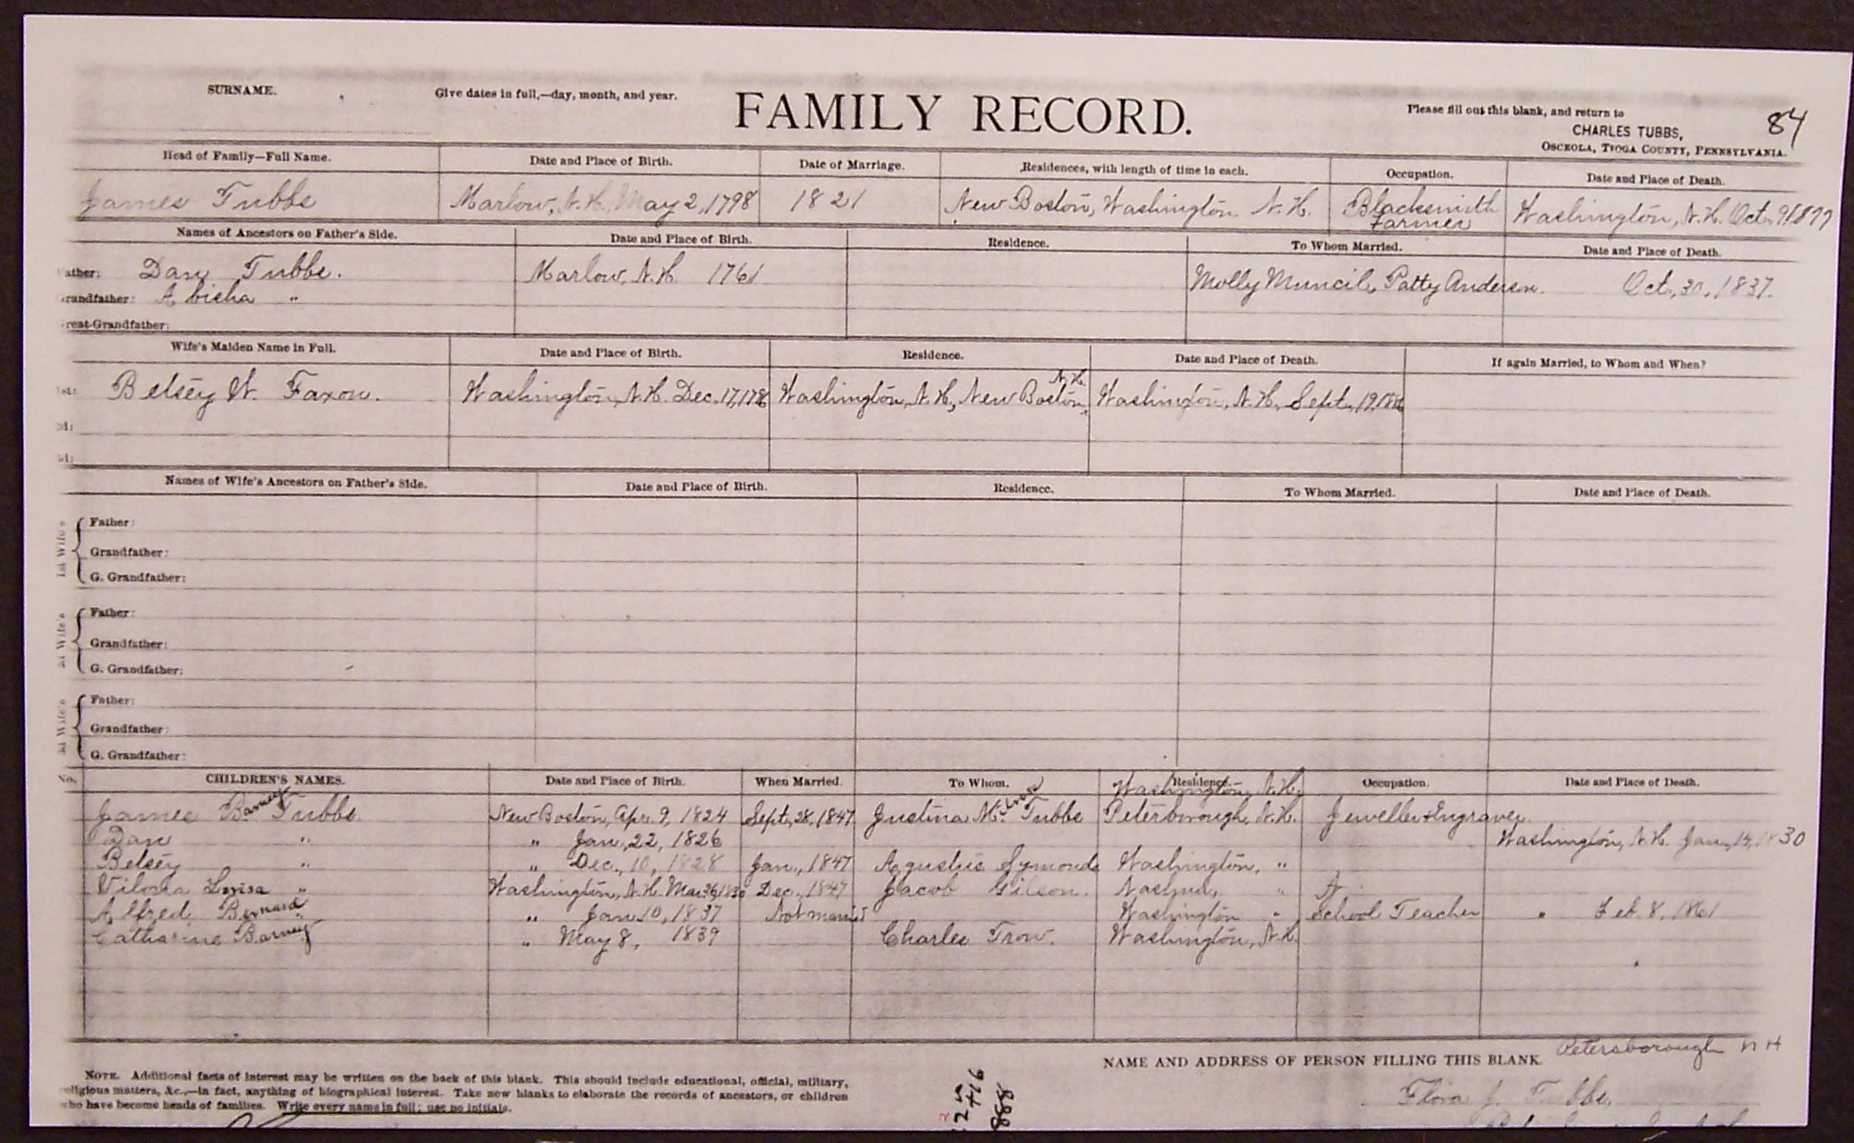 SURNAME.
Give dates in full,—day, month, and year.
FAMILY RECORD.
Please fill out this blank, and return to
CHARLES TUBBS,
OSCEOLA, TIOGA COUNTY, PENNSYLVANIA.
84
Head of Family—Full Name. Date and Place of Birth. Date of Marriage. Residences, with length of time in each. Occupation. Date and Place of Death.
James Tubbs Marlow, N.H. May 2, 1798 1821 New Boston, Washington N.H. Blacksmith Washington, N.H. Oct. 9, 1877
Farmer
Names of Ancestors on Father's Side. Date and Place of Birth. Residence. To Whom Married. Date and Place of Death.
ather: Dan Tubbs. Marlow, N.H. 1761 Molly Muncil, Patty Anderson. Oct. 30, 1837.
randfather: Abisha "
reat-Grandfather:
Wife's Maiden Name in Full. Date and Place of Birth. Residence. Date and Place of Death. If again Married, to Whom and When?
1st: Betsey W. Faxon. Washington, N.H. Dec. 17, Washington, N.H., New Boston, N.H. Washington, N.H. Sept. 19,
d:
d:
Names of Wife's Ancestors on Father's Side. Date and Place of Birth. Residence. To Whom Married. Date and Place of Death.
1st Wife's
Father:
Grandfather:
G. Grandfather:
d Wife's
Father:
Grandfather:
G. Grandfather:
d Wife's
Father:
Grandfather:
G. Grandfather:
No. CHILDREN'S NAMES. Date and Place of Birth. When Married. To Whom. Residence. Occupation. Date and Place of Death.
Washington, N.H.
James Barney Tubbs New Boston, Apr. 9, 1824 Sept. 28, 1847 Justina M. Tubbs Peterborough, N.H. Jeweller & Engraver
Dan " " Jan. 22, 1826 Washington, N.H. Jan. 14, 1830
Betsey " " Dec. 10, 1828 Jan., 1847 Symonds Washington, "
Lovisa " Washington, N.H. Mar. 26, Dec., 1847 Jacob Gilson. Nashua, "
Alfred Bernard " " Jan 10, 1837 Not married Washington " School Teacher " Feb. 8, 1861
Catharine Barney " May 8, 1839 Charles Trow. Washington, N.H.
NOTE. Additional facts of interest may be written on the back of this blank. This should include educational, official, military,
eligious matters, &c.,—in fact, anything of biographical interest. Take new blanks to elaborate the records of ancestors, or children
who have become heads of families. Write every name in full; use no initials.
NAME AND ADDRESS OF PERSON FILLING THIS BLANK. Petersborough N H
Flora J. Tubbs,